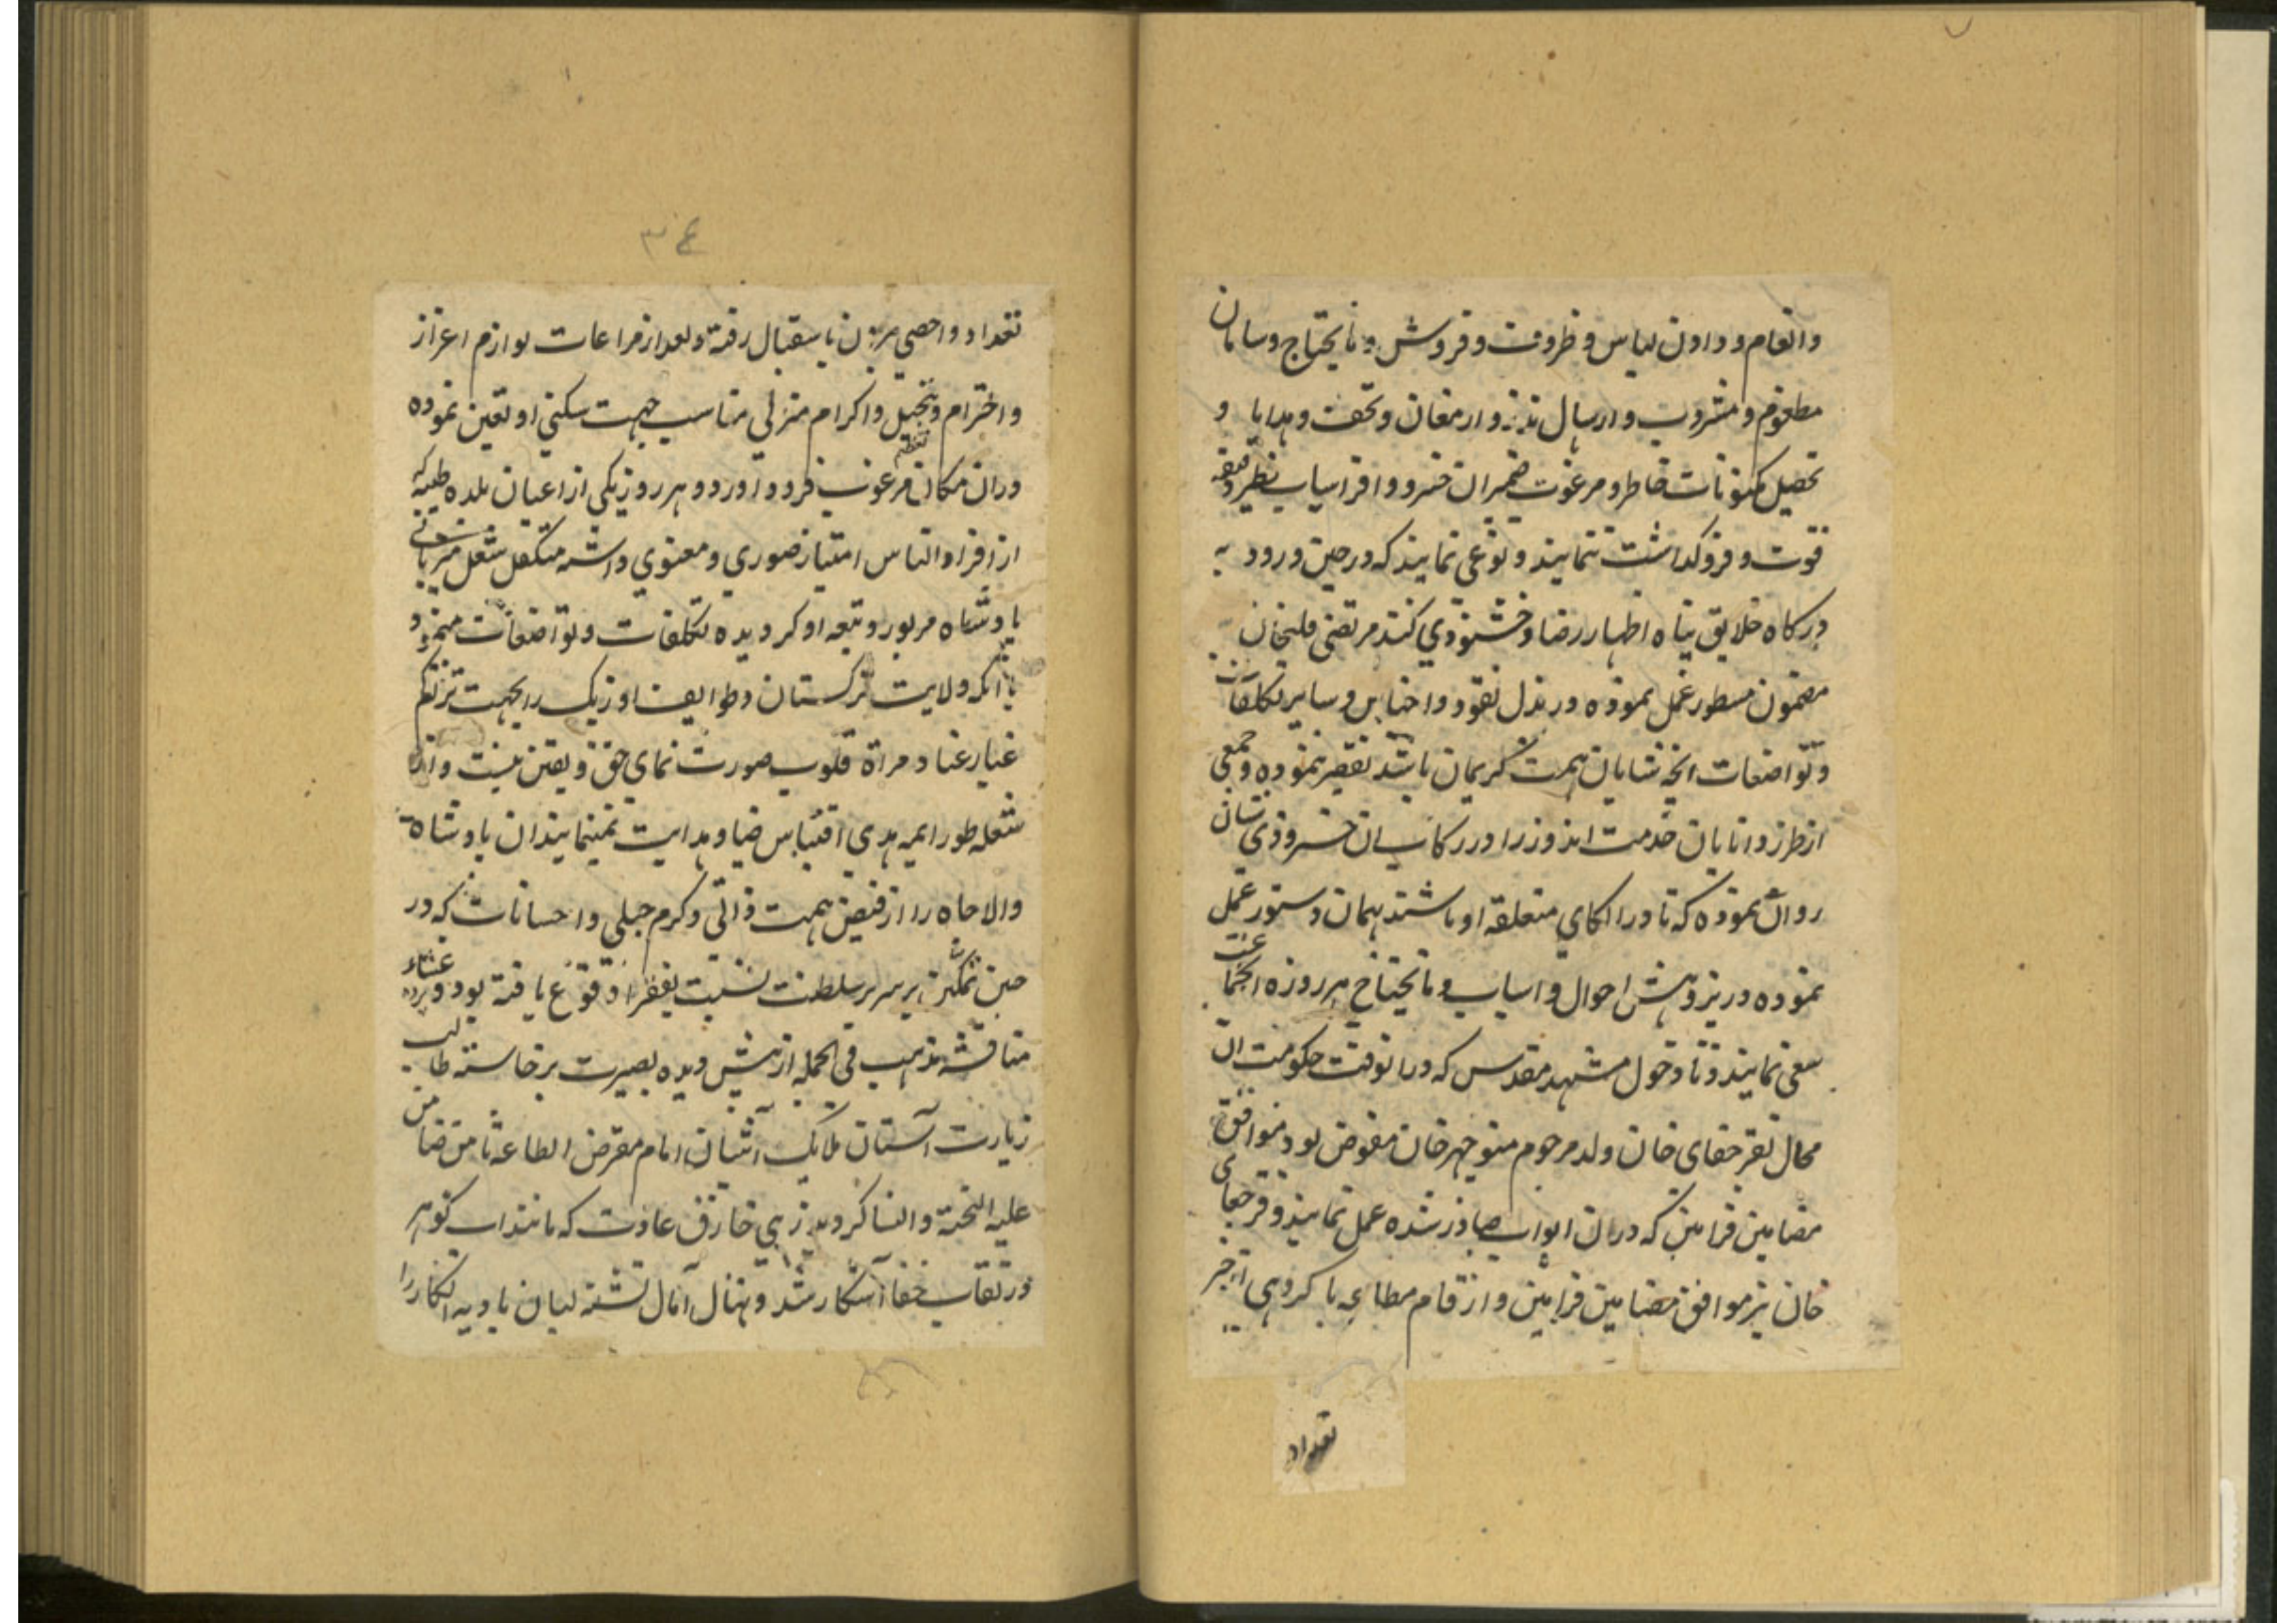 وانعام و دادن لباس و ظروف و فروش و مایحتاج و سامان
مطعوم و مشروب و ارسال نذز و ارمغان و تحف و هدایا و
تحصیل مکنونات خاطر و مرغوب ضمیر ان خسرو افراسیاب نظیر دقیقه
فوت و فروکداشت ننمایند و نوعی نمایند که در حین ورود به
درکاه خلایق پناه اظهار رضا و خشنودی کند مرتضی قلیخان
مضمون مسطور عمل نموده در بذل نقود و اجناس و سایر تکلفات
و تواضعات انچه شایان همت کریمان باشد تقصیر ننموده و جمعی
از طرز دانایان خدمت اندوز را در رکاب ان خسرو ذی شان
روان نموده که تا در الکای متعلقه او باشند بهمان دستور عمل
نموده در پژوهش احوال و اسباب و مایحتاج هر روزه انجماعت
سعی نمایند و تا دخول مشهد مقدس که در انوقت حکومت ان
محال بقرجقای خان ولد مرحوم منوچهر خان مفوض بود موافق
مضامین فرامین که در ان ابواب صادر شده عمل نمایند و قرجقای
خان نیز موافق مضامین فرامین و ارقام مطاعه با کروهی از حیز
تعداد
۳۴
تعداد و احصی بیرون باستقبال رفته و بعد از مراعات لوازم اعزاز
و احترام و تبجیل و اکرام منزلی مناسب جهت سکنی او تعین نموده
در ان مکان مرغوب فرود اورد و هر روز یکی از اعیان بلده طیبه که
از افراد الناس امتیاز صوری و معنوی داشته متکفل شغل میزبانی
پادشاه مزبور و تبعه او کردیده تکلفات و تواضعات مینمود و
با انکه ولایت ترکستان و طوایف اوزبک را بجهت تراکم
غبار عناد مراة قلوب صورت نمای حق و یقین نیست و از
شعله طور ایمه هدی اقتباس ضیاء هدایت نمینمایند ان پادشاه
والا جاه را از فیض همت ذاتی و کرم جبلی و احسانات که در
حین تمکن بر سریر سلطنت نسبت بفقرا وقوع یافته بود و پرده غشاء
مناقشه مذهب فی الجمله از پیش دیده بصیرت برخاسته طالب
زیارت آستان ملایک آشیان امام مفترض الطاعه ثامن ضامن
علیه التحیة والثنا کردید زهی خارق عادت که مانند اب کوهر
در نقاب خفا آشکار شد و نهال آمال تشنه لبان بادیه انکار را